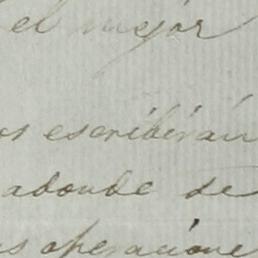 el mejor
os escribirán
adonde se
us operacione